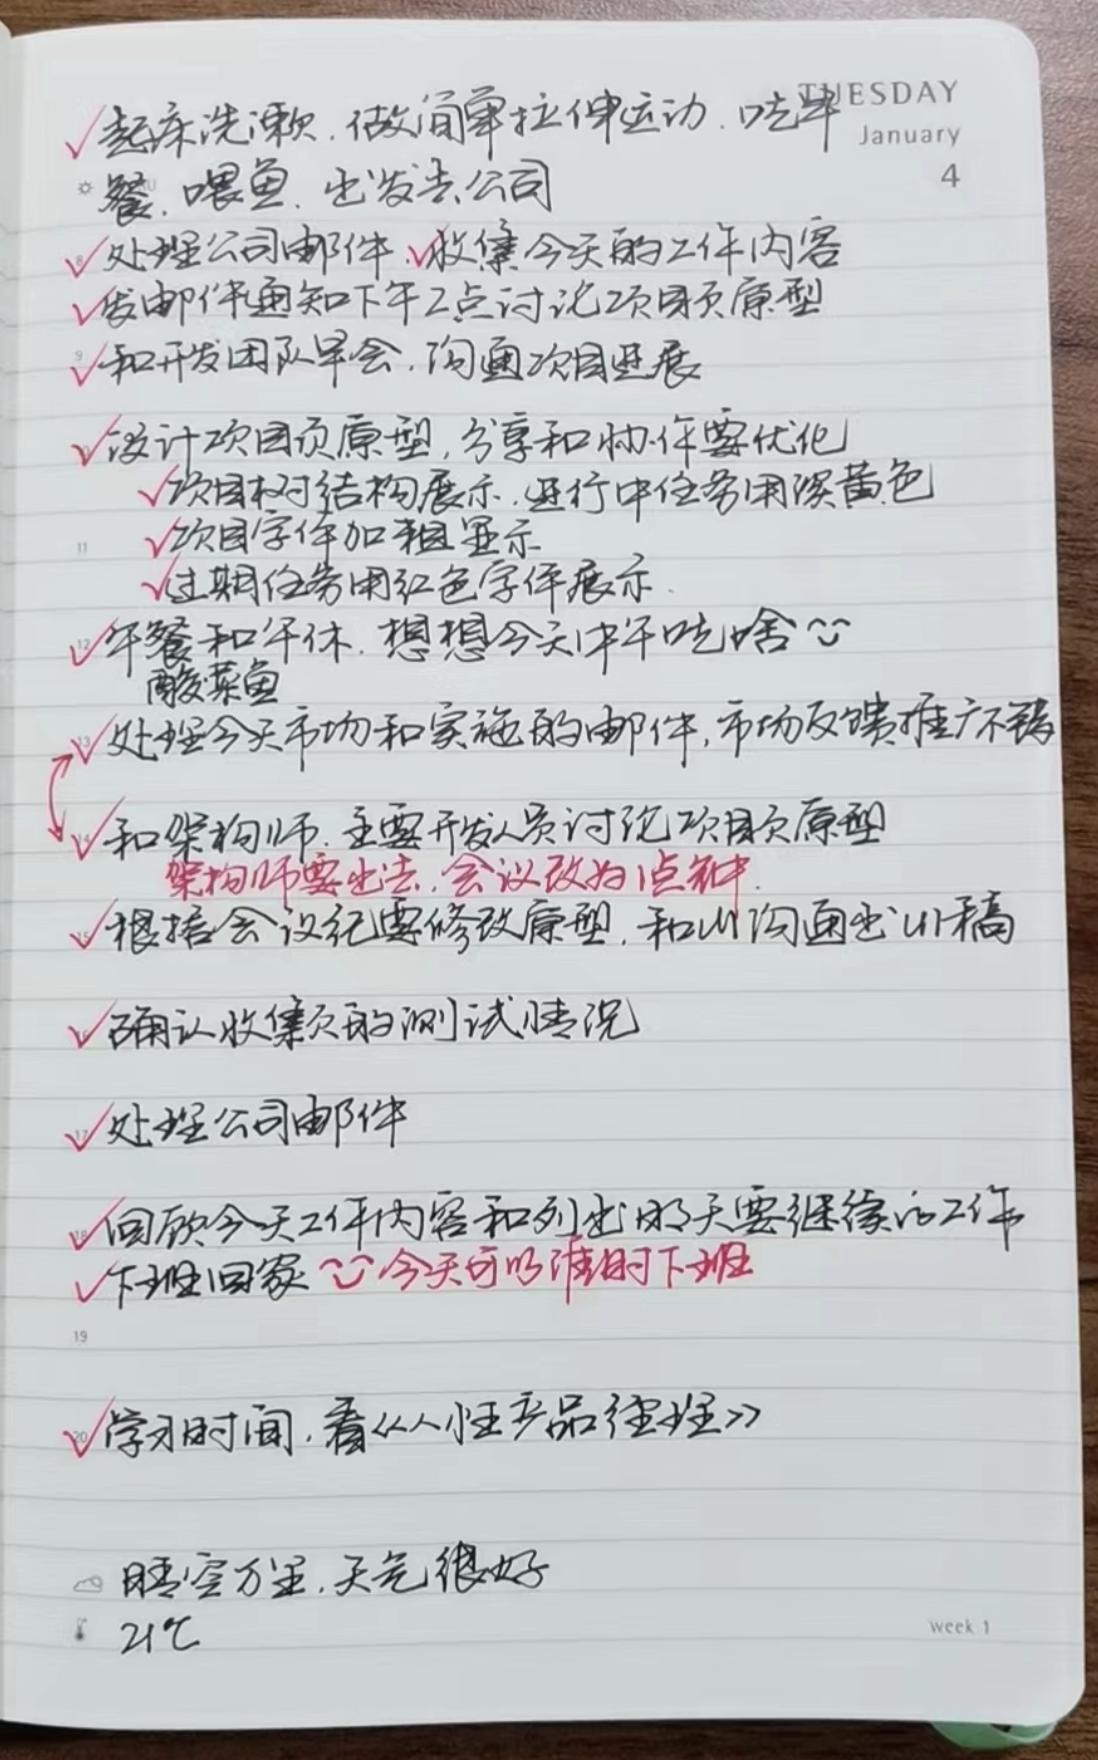 TUESDAY
January
4
✓起床洗漱.做简单拉伸运动.吃早
餐.喂鱼.出发去公司
8 ✓处理公司邮件.✓收集今天的工作内容
✓发邮件通知下午2点讨论项目页原型
9 ✓和开发团队早会.沟通项目进展
✓设计项目页原型,分享和协作要优化
✓项目树结构展示.进行中任务用深黄色
11 ✓项目字体加粗显示
✓过期任务用红色字体展示.
12 ✓午餐和午休.想想今天中午吃啥
酸菜鱼
13 ✓处理今天市场和实施的邮件,市场反馈推广不错
14 ✓和架构师.主要开发人员讨论项目页原型
架构师要出去.会议改为1点钟.
15 ✓根据会议纪要修改原型.和UI沟通出UI稿
16 ✓确认收集页的测试情况
17 ✓处理公司邮件
18 ✓回顾今天工作内容和列出明天要继续的工作
✓下班回家 今天可以准时下班
19
20 ✓学习时间.看《人人性产品经理》
晴空万里.天气很好
21℃
week 1